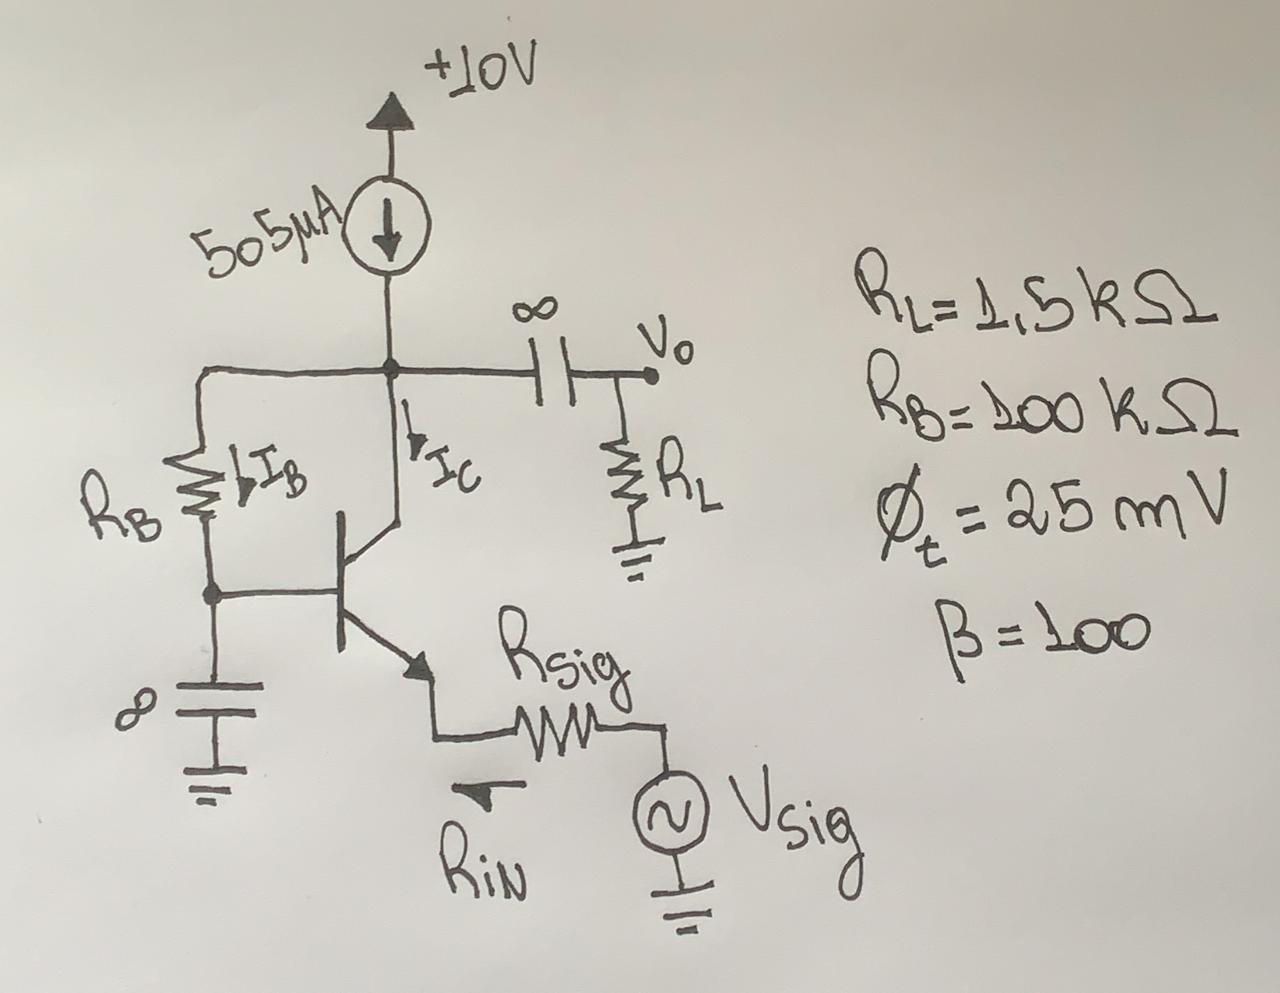 +10V
505μA
∞
Vo
RB
IB
IC
RL
∞
Rsig
Rin
Vsig
RL=1,5kΩ
RB=100kΩ
φt=25mV
β=100